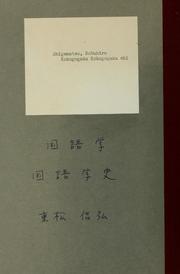 Shigematsu, Nobuhiro
Kokugogaku Kokugogaku shi
国語学
国語学史
重松信弘